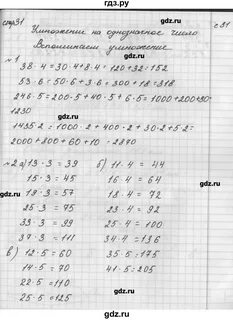 гдз.ру
стр31
с 31
Умножение на однозначное число
Вспоминаем умножение
№1
38·4=30·4+8·4=120+32=152
53·6=50·6+3·6=300+18=318
246·5=200·5+40·5+6·5=1000+200+30=
1230
1435·2=1000·2+400·2+30·2+5·2=
2000+800+60+10=2870
№2 а) 13·3=39 б) 11·4=44
15·3=45 16·4=64
19·3=57 18·4=72
25·3=75 23·4=92
33·3=99 25·4=100
37·3=111 34·4=136
в) 12·5=60 35·5=175
14·5=70 41·5=205
22·5=110
25·5=125